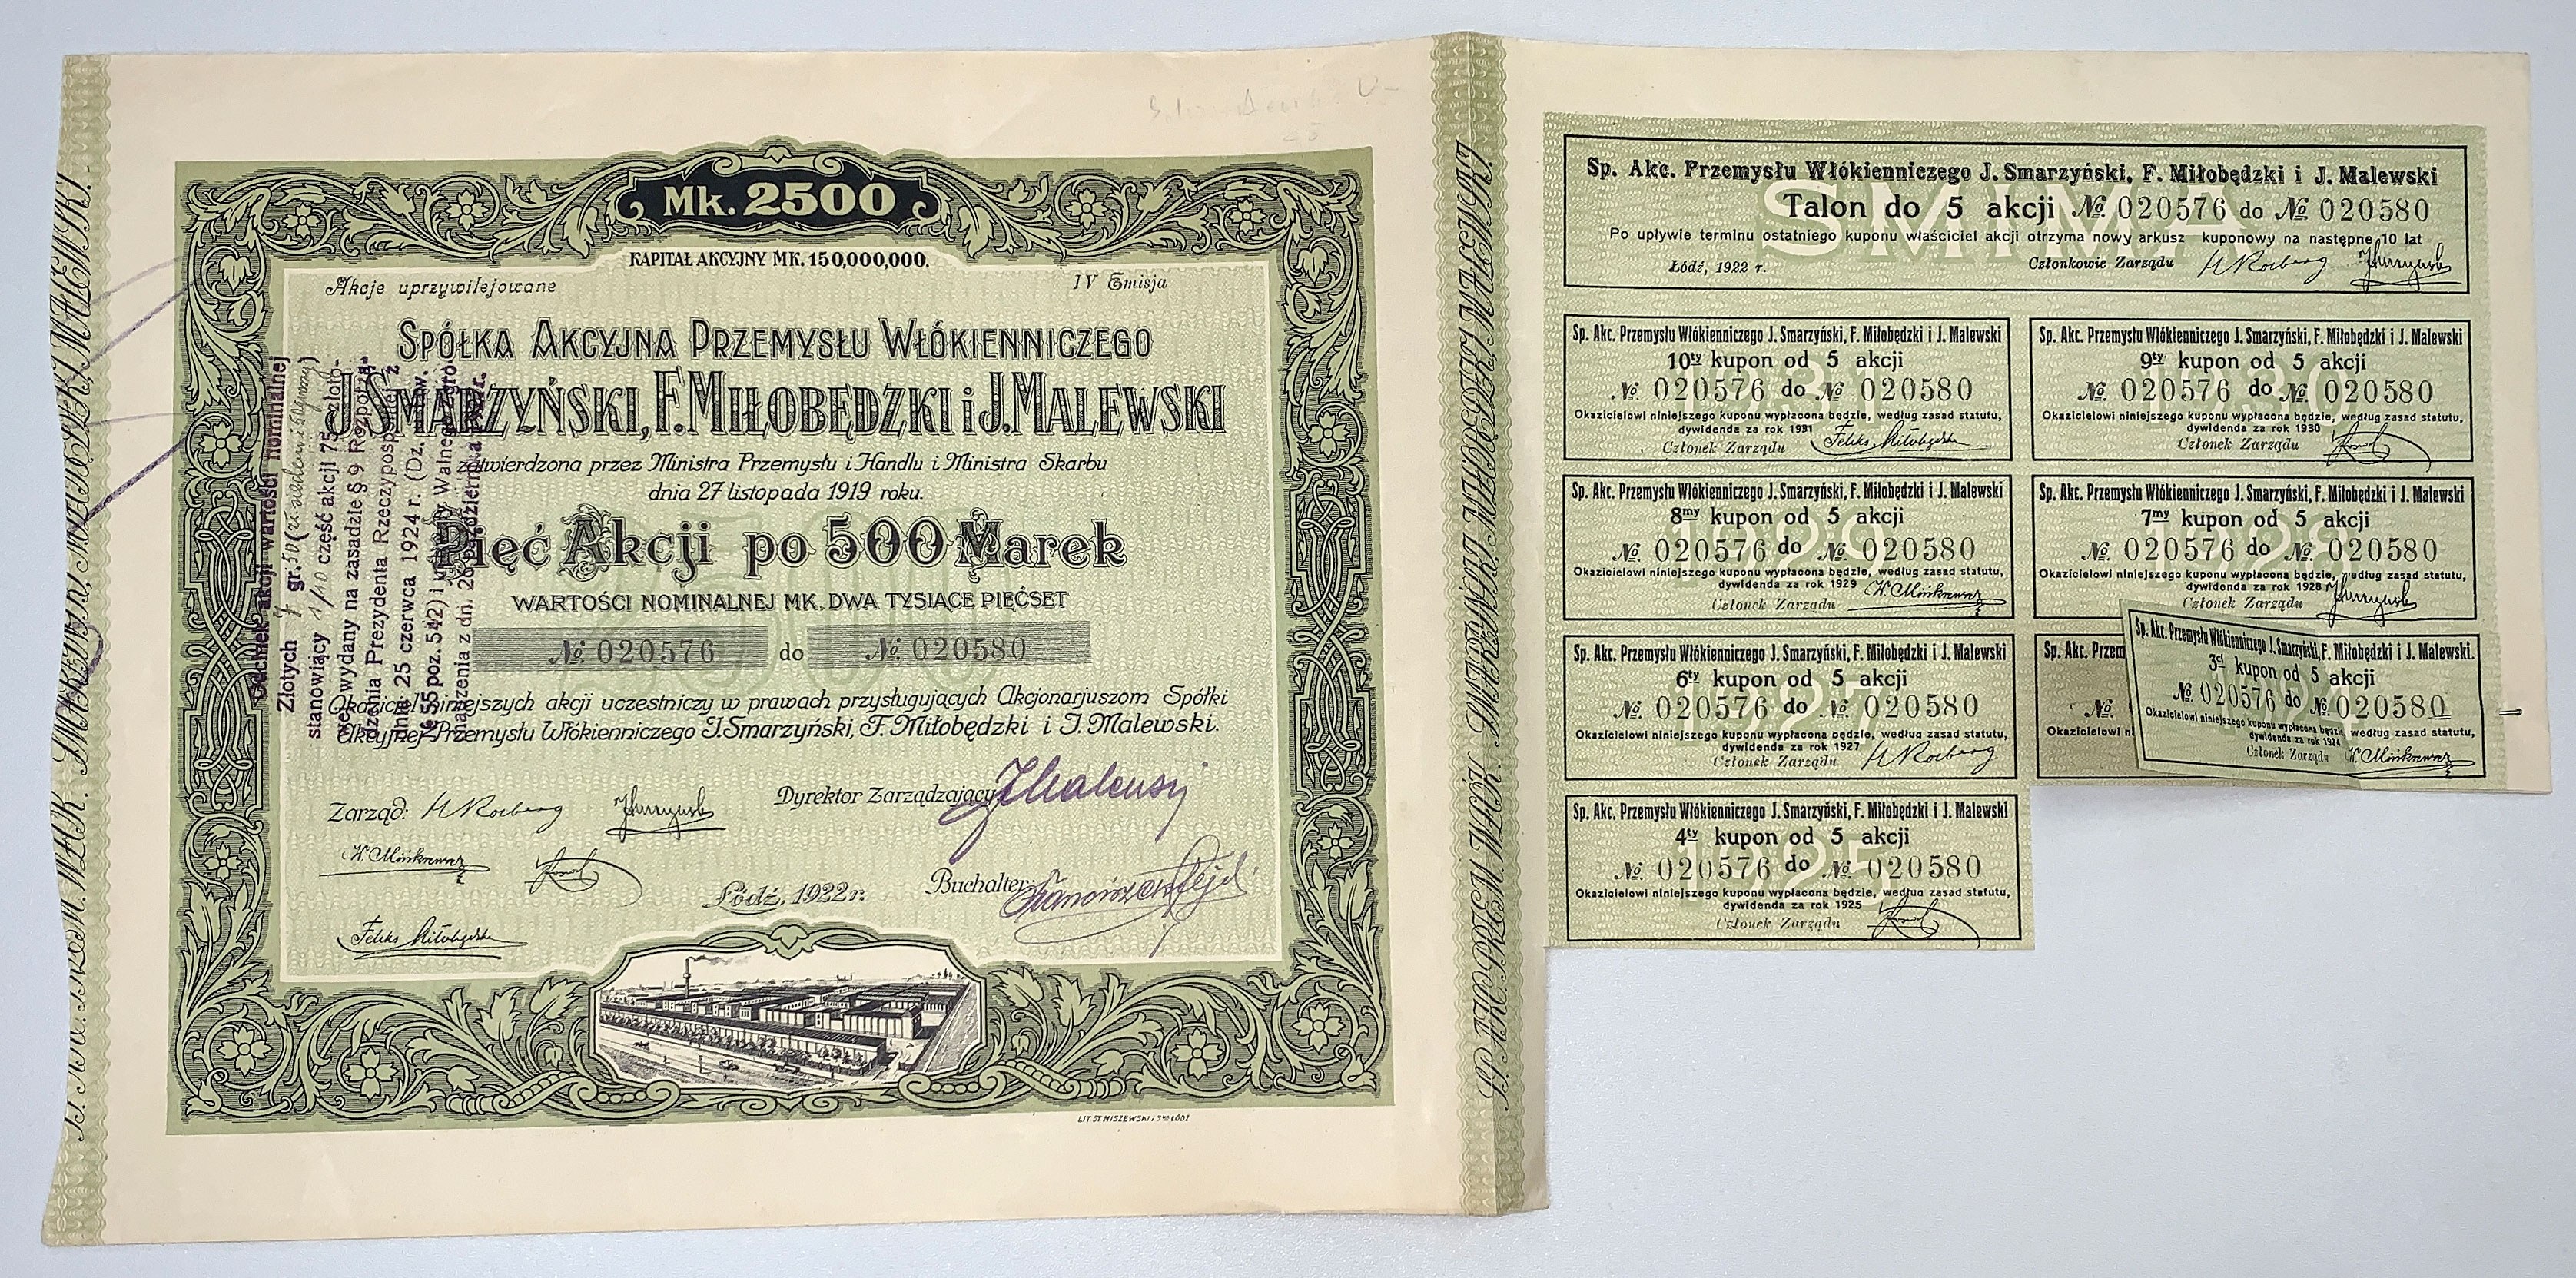 Mk. 2500
KAPITAŁ AKCYJNY MK. 150,000,000.
Akcje uprzywilejowane
IV Emisja
SPÓŁKA AKCYJNA PRZEMYSŁU WŁÓKIENNICZEGO
J. SMARZYŃSKI, F. MIŁOBĘDZKI i J. MALEWSKI
zatwierdzona przez Ministra Przemysłu i Handlu i Ministra Skarbu
dnia 27 listopada 1919 roku.
Pięć Akcji po 500 Marek
WARTOŚCI NOMINALNEJ MK. DWA TYSIĄCE PIĘĆSET
№ 020576 do № 020580
Okaziciel niniejszych akcji uczestniczy w prawach przysługujących Akcjonarjuszom Spółki
Akcyjnej Przemysłu Włókienniczego J. Smarzyński, F. Miłobędzki i J. Malewski.
Zarząd:
Dyrektor Zarządzający
Buchalter:
Feliks Miłobędzki
Łódź, 1922 r.
LIT. ST. NISZEWSKI i S-KA ŁÓDŹ
Odcinek akcji wartości nominalnej
Złotych 7 gr. 50
stanowiący 1/10 część akcji 75 złoto-
wej wydany na zasadzie § 9 Rozporzą-
dzenia Prezydenta Rzeczypospolitej z
dnia 25 czerwca 1924 r. (Dz. Ustaw.
№ 55 poz. 542) i uchwały Walnego Zgro-
madzenia z dn. 26 października 1924 r.
SP. AKC. PRZEM. WŁÓK. J. SMARZYŃSKI, F. MIŁOBĘDZKI, J. MALEWSKI.
SP. AKC. PRZEM. WŁÓK. J. SMARZYŃSKI, F. MIŁOBĘDZKI, J. MALEWSKI.
SMIMA
Sp. Akc. Przemysłu Włókienniczego J. Smarzyński, F. Miłobędzki i J. Malewski
Talon do 5 akcji № 020576 do № 020580
Po upływie terminu ostatniego kuponu właściciel akcji otrzyma nowy arkusz kuponowy na następne 10 lat
Łódź, 1922 r.
Członkowie Zarządu
Sp. Akc. Przemysłu Włókienniczego J. Smarzyński, F. Miłobędzki i J. Malewski
10ty kupon od 5 akcji
№ 020576 do № 020580
Okazicielowi niniejszego kuponu wypłacona będzie, według zasad statutu,
dywidenda za rok 1931
Członek Zarządu Feliks Miłobędzki
Sp. Akc. Przemysłu Włókienniczego J. Smarzyński, F. Miłobędzki i J. Malewski
9ty kupon od 5 akcji
№ 020576 do № 020580
Okazicielowi niniejszego kuponu wypłacona będzie, według zasad statutu,
dywidenda za rok 1930
Członek Zarządu
Sp. Akc. Przemysłu Włókienniczego J. Smarzyński, F. Miłobędzki i J. Malewski
8my kupon od 5 akcji
№ 020576 do № 020580
Okazicielowi niniejszego kuponu wypłacona będzie, według zasad statutu,
dywidenda za rok 1929
Członek Zarządu
Sp. Akc. Przemysłu Włókienniczego J. Smarzyński, F. Miłobędzki i J. Malewski
7my kupon od 5 akcji
№ 020576 do № 020580
Okazicielowi niniejszego kuponu wypłacona będzie, według zasad statutu,
dywidenda za rok 1928
Członek Zarządu
Sp. Akc. Przemysłu Włókienniczego J. Smarzyński, F. Miłobędzki i J. Malewski
6ty kupon od 5 akcji
№ 020576 do № 020580
Okazicielowi niniejszego kuponu wypłacona będzie, według zasad statutu,
dywidenda za rok 1927
Członek Zarządu
Sp. Akc. Przem
№
Okazicielowi n
Sp. Akc. Przemysłu Włókienniczego J. Smarzyński, F. Miłobędzki i J. Malewski.
3ci kupon od 5 akcji
№ 020576 do № 020580
Okazicielowi niniejszego kuponu wypłacona będzie, według zasad statutu,
dywidenda za rok 1924
Członek Zarządu
Sp. Akc. Przemysłu Włókienniczego J. Smarzyński, F. Miłobędzki i J. Malewski
4ty kupon od 5 akcji
№ 020576 do № 020580
Okazicielowi niniejszego kuponu wypłacona będzie, według zasad statutu,
dywidenda za rok 1925
Członek Zarządu